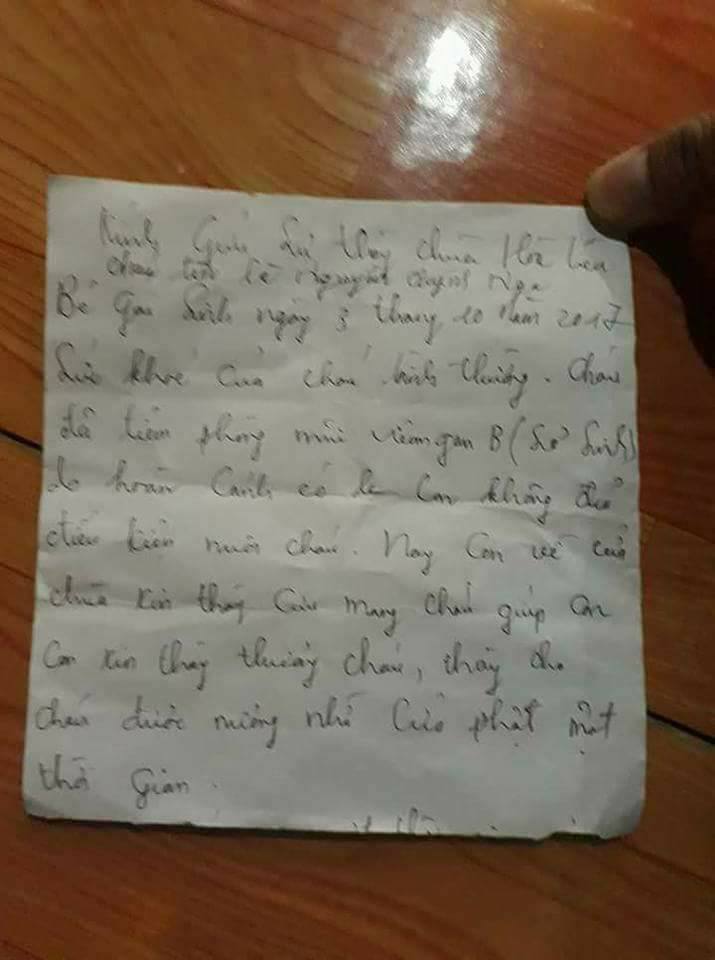 Kính Gửi Sư thầy chùa Hoà Liễu
cháu tên Lê Nguyễn Quỳnh Nga
Bé gái sinh ngày 3 tháng 10 năm 2017
Sức khoẻ của cháu bình thường. Cháu
đã tiêm phòng mũi viêm gan B (Sơ Sinh)
do hoàn cảnh cơ Con không đủ
điều kiện nuôi cháu. Nay Con về cửa
chùa xin thầy Cưu mang cháu giúp con
Con xin thầy thương cháu, thầy cho
cháu được nương nhờ Cửa phật một
thời gian.